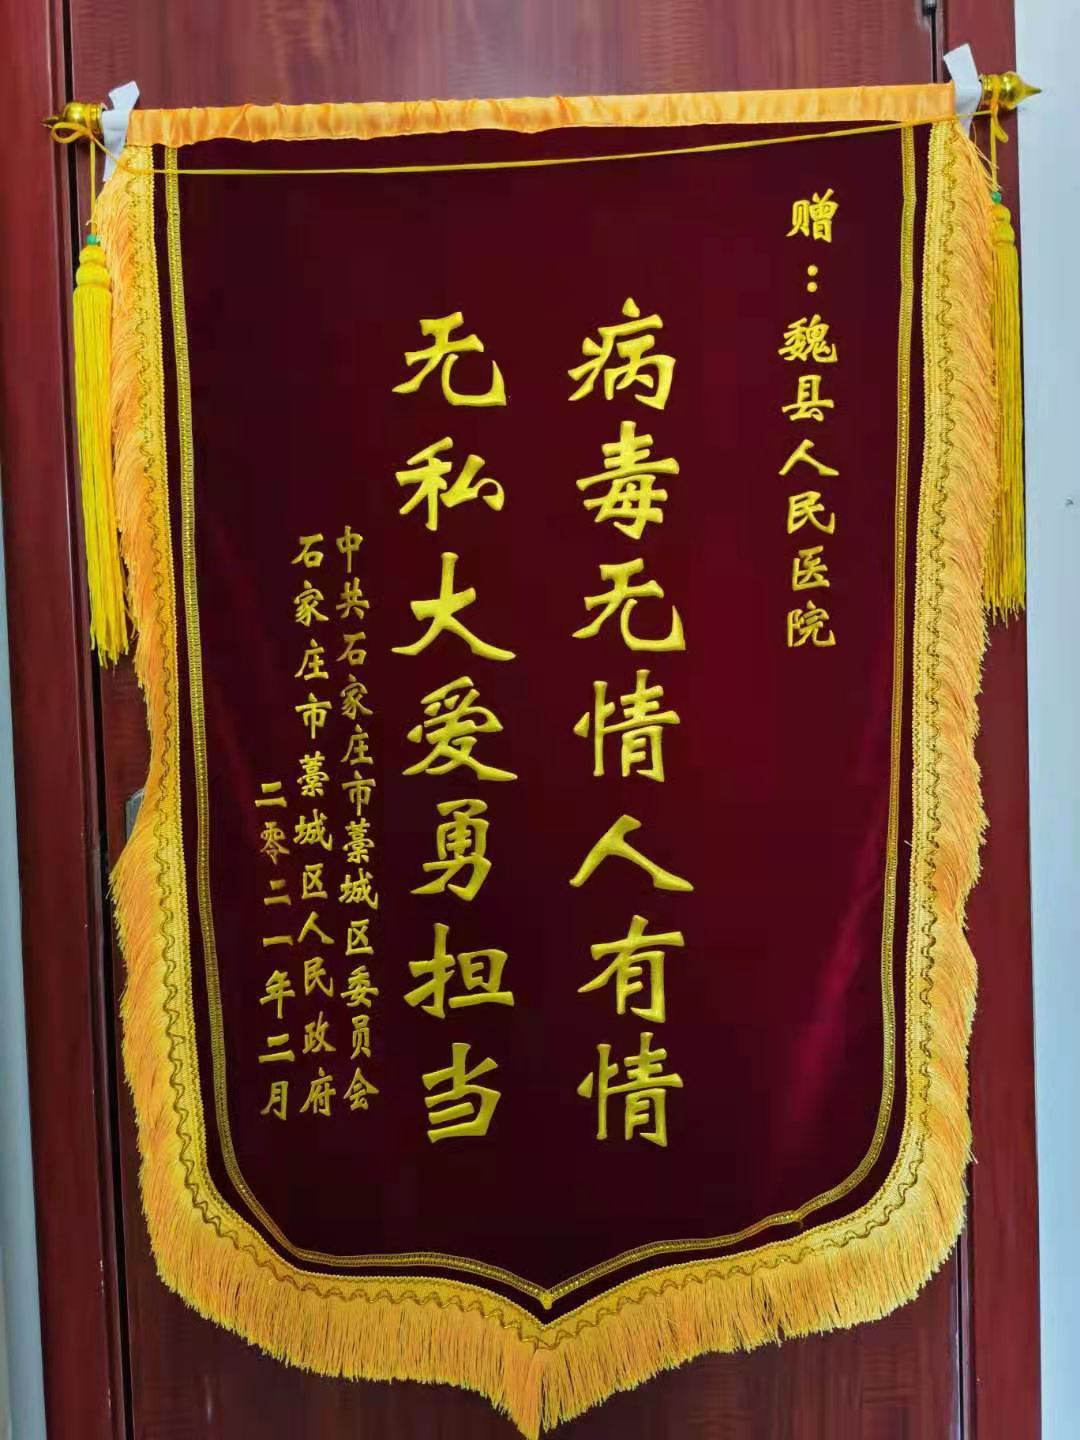 赠：魏县人民医院
病毒无情人有情
无私大爱勇担当
中共石家庄市藁城区委员会
石家庄市藁城区人民政府
二零二一年二月